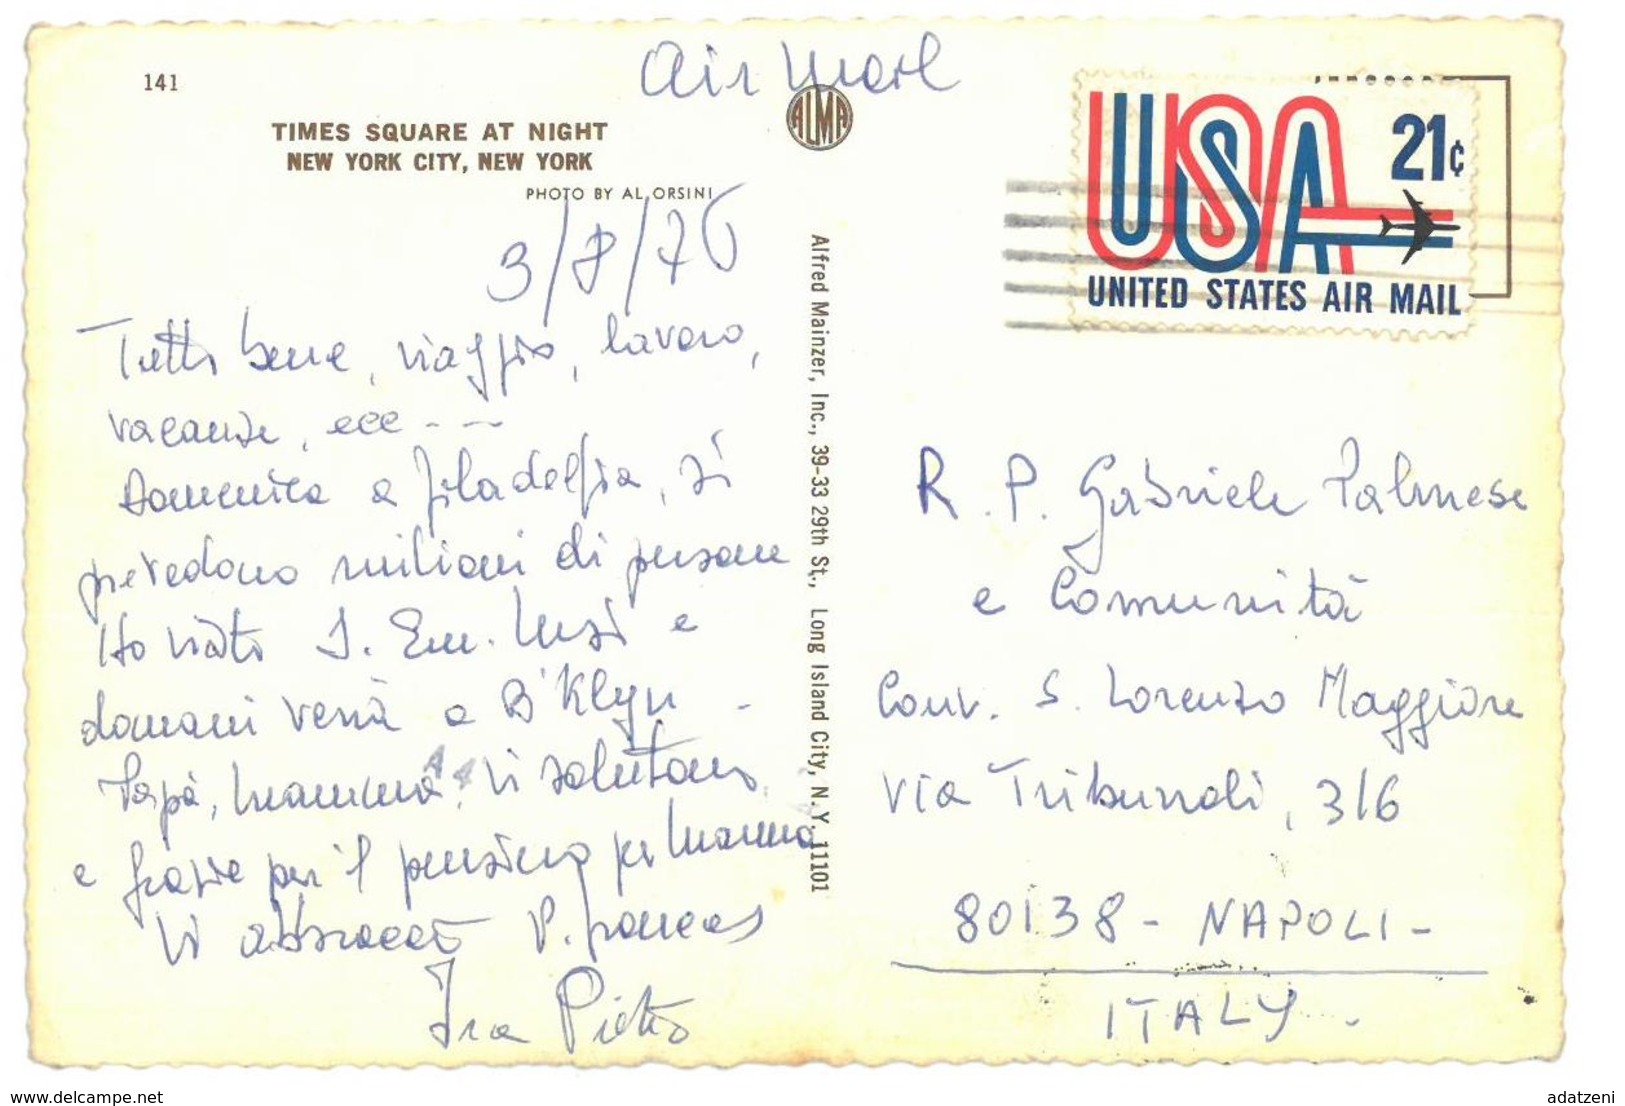 141
TIMES SQUARE AT NIGHT
NEW YORK CITY, NEW YORK
PHOTO BY AL ORSINI
Air Mail
ALMA
USA 21¢
UNITED STATES AIR MAIL
3/8/76
Tutto bene, viaggio, lavoro,
vacanze, ecc - - -
Domenica a Filadelfia, si
prevedono milioni di persone
Ho visto S. Em. e
domani verrà a B'Klyn -
Papà, mamma, vi salutano,
e grazie per il pensiero per mamma
Vi abbraccio P.
Fra Pietro
Alfred Mainzer, Inc., 39-33 29th St., Long Island City, N. Y. 11101
R. P. Gabriele Palmese
e Comunità
Conv. S. Lorenzo Maggiore
Via Tribunali, 316
80138 - NAPOLI -
ITALY -
www.delcampe.net
adatzeni